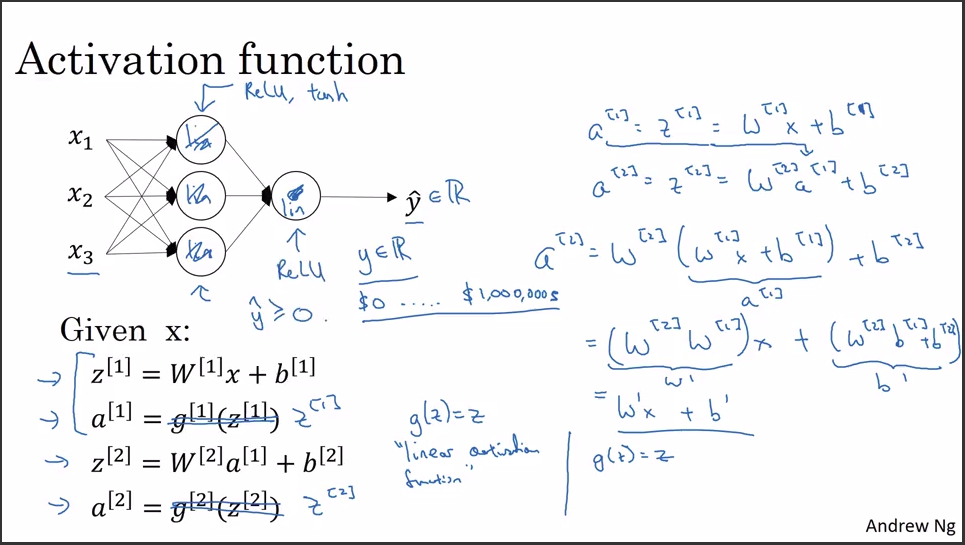 Activation function
ReLU, tanh
x₁
x₂
x₃
lin
ŷ ∈ ℝ
ReLU
y ∈ ℝ
$0 ..... $1,000,000s
ŷ ≥ 0.
Given x:
z^[1] = W^[1]x + b^[1]
a^[1] = g^[1](z^[1]) z^[1]
z^[2] = W^[2]a^[1] + b^[2]
a^[2] = g^[2](z^[2]) z^[2]
g(z) = z
"linear activation
function"
a^[1] = z^[1] = W^[1]x + b^[1]
a^[2] = z^[2] = W^[2]a^[1] + b^[2]
a^[2] = W^[2](W^[1]x + b^[1]) + b^[2]
a^[1]
= (W^[2]W^[1])x + (W^[2]b^[1] + b^[2])
W' b'
= W'x + b'
g(z) = z
Andrew Ng